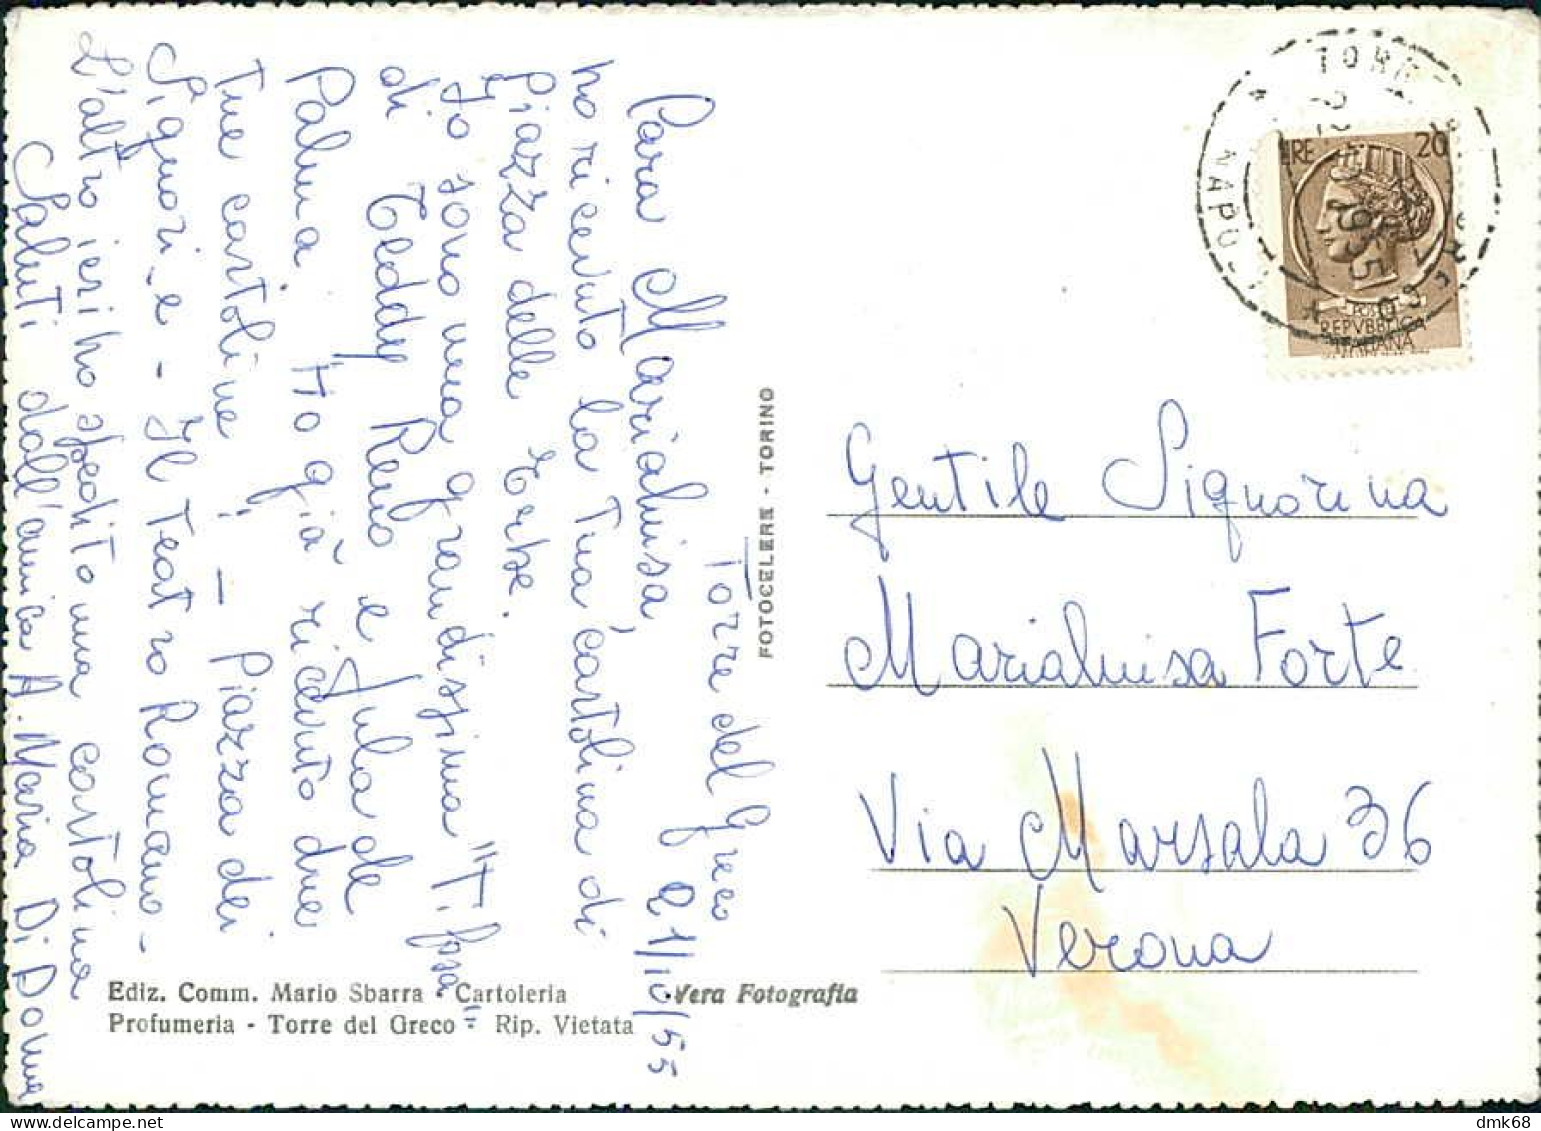 Torre del Greco
21/10/55
Cara Marialuisa,
ho ricevuto la Tua cartolina di
Piazza delle Erbe.
Io sono una grandissima "Tifosa"
di Teddy Reno e Jula de
Palma. Ho già ricevuto due
Tue cartoline: - Piazza dei
Signori - e - Il Teatro Romano -
L'altro ieri ho spedito una cartolina
Saluti dall'amica A. Maria Di Donna
Ediz. Comm. Mario Sbarra - Cartoleria
Profumeria - Torre del Greco - Rip. Vietata
Vera Fotografia
FOTOCELERE - TORINO
LIRE 20
POSTE
REPVBBLICA
ITALIANA
NAPOLI
Gentile Signorina
Marialuisa Forte
Via Marsala 36
Verona
dmk68